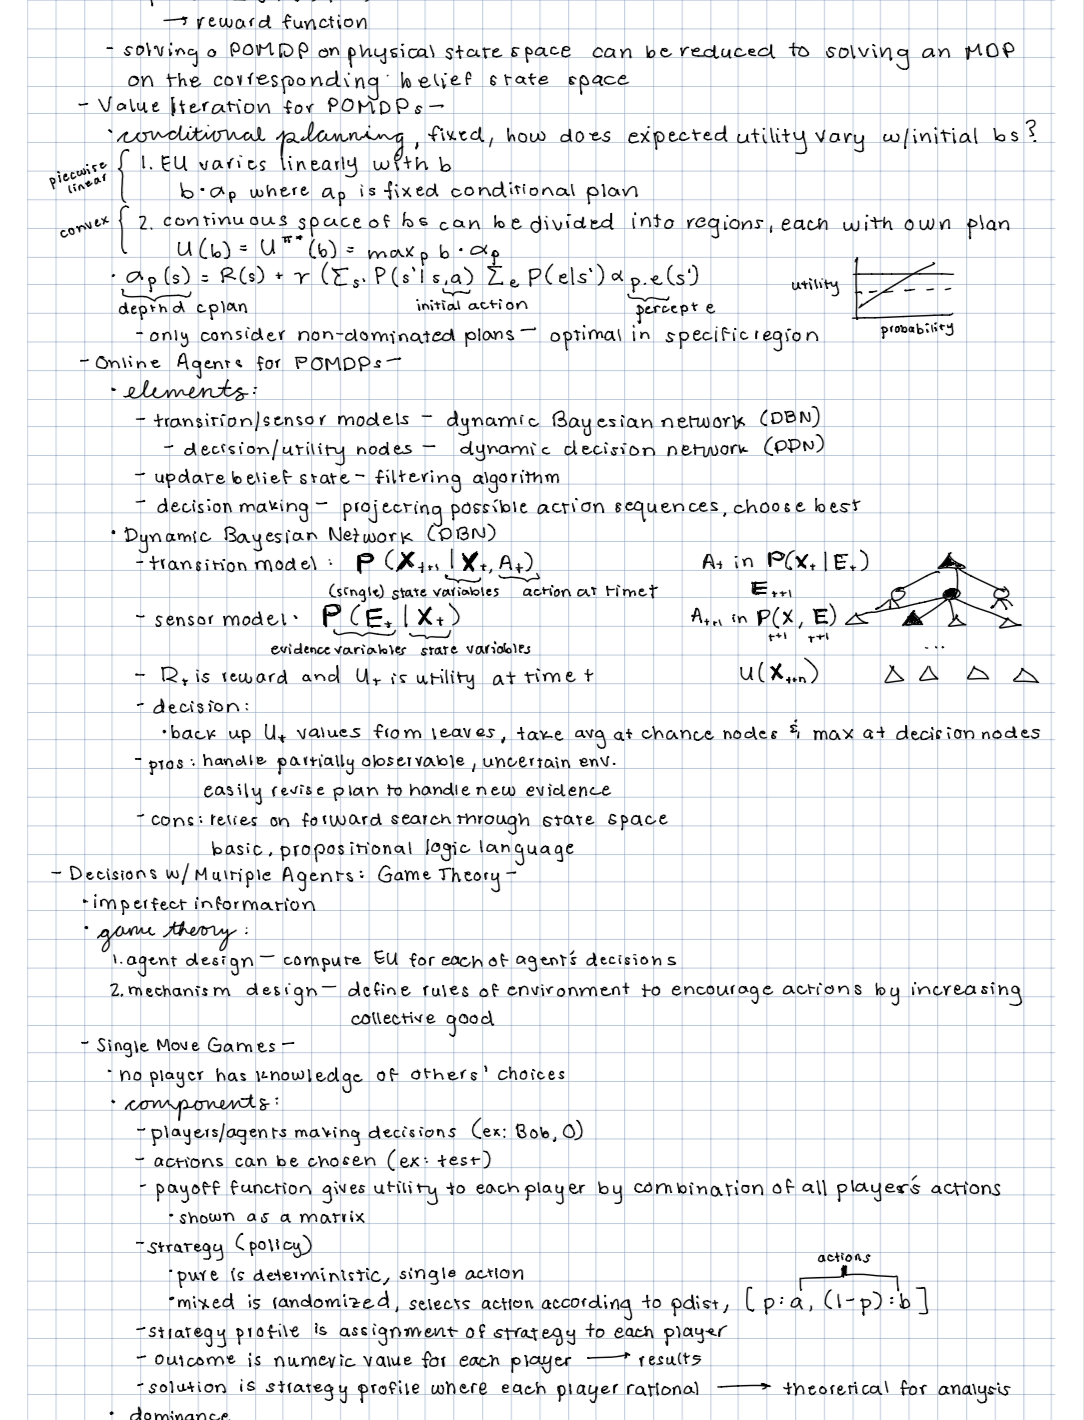 → reward function
- solving a POMDP on physical state space can be reduced to solving an MDP
on the corresponding belief state space
- Value Iteration for POMDPs -
· conditional planning, fixed, how does expected utility vary w/initial bs?
piecewise linear { 1. EU varies linearly with b
b·αp where αp is fixed conditional plan
convex { 2. continuous space of bs can be divided into regions, each with own plan
U(b) = U^π*(b) = max_p b·αp
· αp(s) = R(s) + γ (Σs' P(s'|s,a) Σe P(e|s') αp.e(s')
depth d cplan initial action percept e
utility
probability
- only consider non-dominated plans - optimal in specific region
- Online Agents for POMDPs -
· elements:
- transition/sensor models - dynamic Bayesian network (DBN)
- decision/utility nodes - dynamic decision network (DDN)
- update belief state - filtering algorithm
- decision making - projecting possible action sequences, choose best
· Dynamic Bayesian Network (DBN)
- transition model: P(X_t+1 | X_t, A_t)
(single) state variables action at time t
- sensor model· P(E_t | X_t)
evidence variables state variables
A_t in P(X_t | E_t)
E_t+1
A_t+1 in P(X_t+1, E_t+1)
...
U(X_t+n)
- R_t is reward and U_t is utility at time t
- decision:
· back up U_t values from leaves, take avg at chance nodes & max at decision nodes
- pros: handle partially observable, uncertain env.
easily revise plan to handle new evidence
- cons: relies on forward search through state space
basic, propositional logic language
- Decisions w/ Multiple Agents: Game Theory -
· imperfect information
· game theory:
1. agent design - compute EU for each of agent's decisions
2. mechanism design - define rules of environment to encourage actions by increasing
collective good
- Single Move Games -
· no player has knowledge of others' choices
· components:
- players/agents making decisions (ex: Bob, O)
- actions can be chosen (ex: test)
- payoff function gives utility to each player by combination of all player's actions
· shown as a matrix
- strategy (policy)
· pure is deterministic, single action
actions
· mixed is randomized, selects action according to pdist, [p:a, (1-p):b]
- strategy profile is assignment of strategy to each player
- outcome is numeric value for each player → results
- solution is strategy profile where each player rational → theoretical for analysis
· dominance